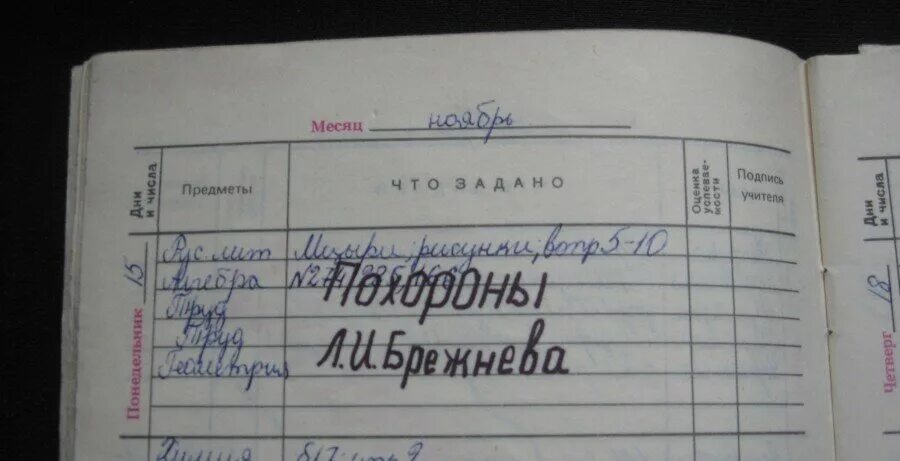 Месяц ноябрь
Дни и числа Предметы ЧТО ЗАДАНО Оценка успеваемости Подпись учителя Дни и числа
Понедельник 15 Рус. лит Мцыри, рисунки, вопр 5-10
Алгебра
Похороны
Труд
Труд
Л.И.Брежнева
Геометрия
Химия
Четверг 18